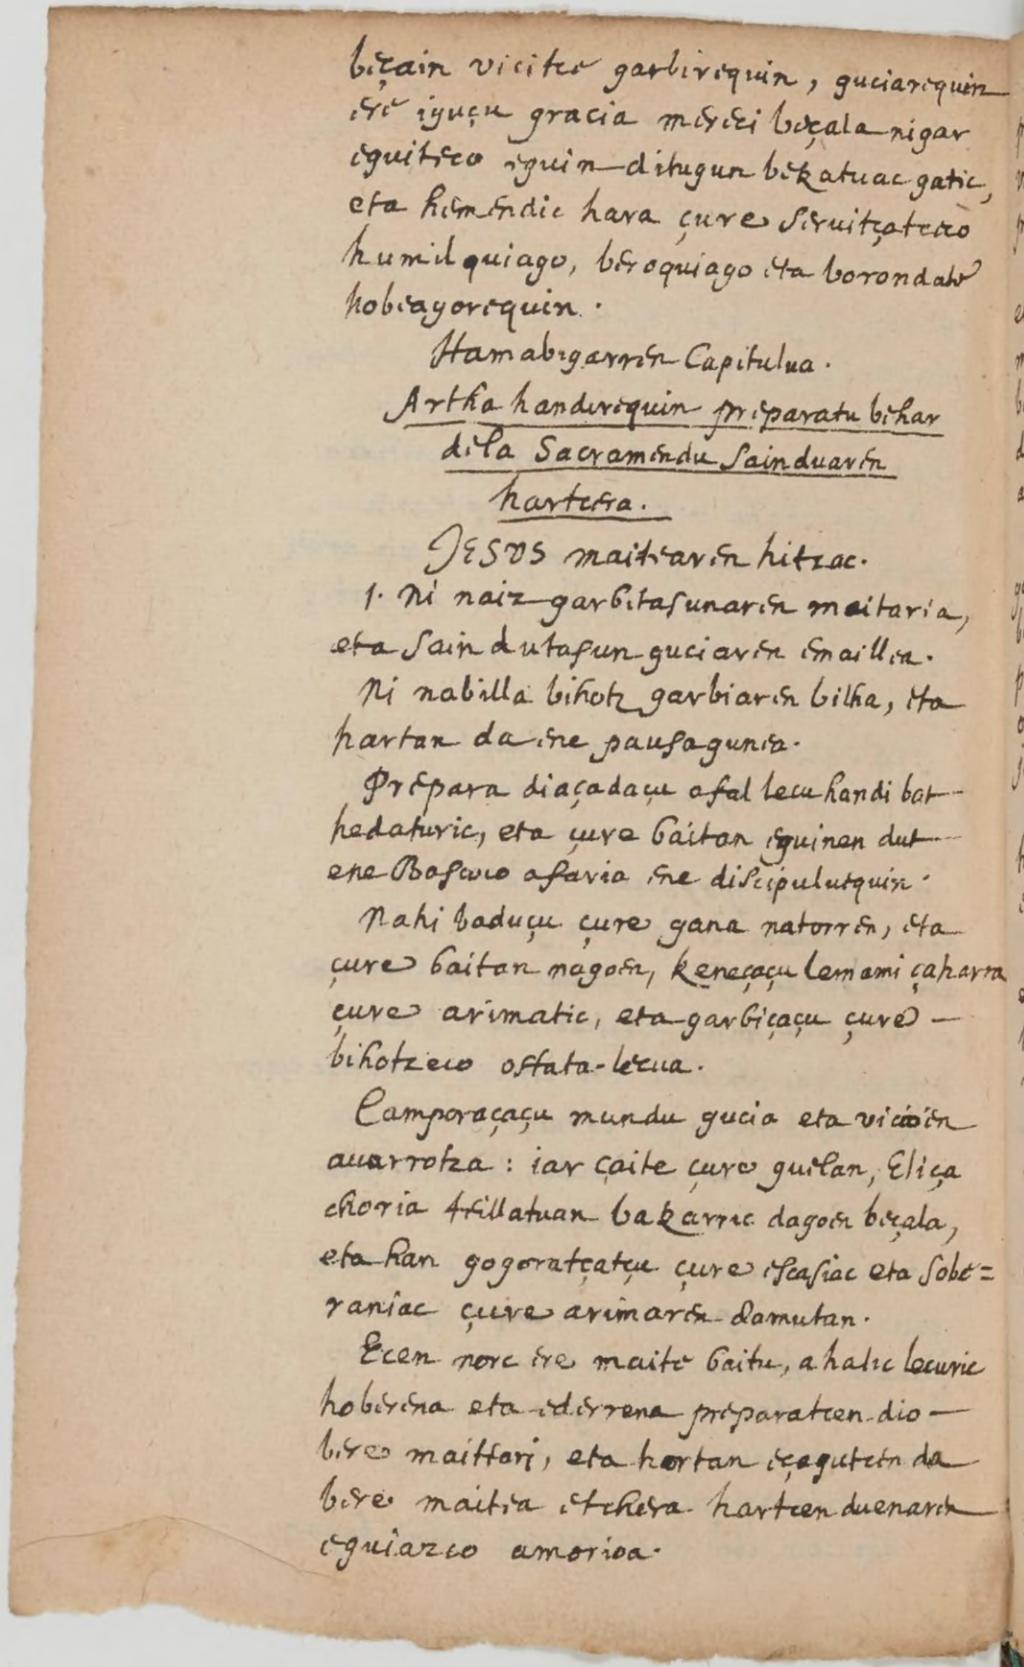 beçain vicitce garbirequin, guciarequin
ere iguçu gracia mereci beçala nigar
eguiteco eguin ditugun bekatuac gatic,
eta hemendic hara çure seruitçateco
humilquiago, beroquiago eta borondate
hobeagorequin.
Hamabigarren Capitulua.
Artha handirequin preparatu behar
dela Sacramendu sainduaren
hartcera.
JESUS maitearen hitzac.
1. Ni naiz garbitasunaren maitaria,
eta saindutasun guciaren emaillea.
Ni nabilla bihotz garbiaren bilha, eta
hartan da ene pausagunea.
Prepara diaçadaçu asal lecu handi bat
hedaturic, eta çure baitan eguinen dut
ene Bascoco afaria ene discipuluequin.
Nahi baduçu çure gana natorren, eta
çure baitan nagoen, keneçaçu lemami çaharra
çure arimatic, eta garbiçaçu çure
bihotzeco ostata-lecua.
Camporaçaçu mundu gucia eta vicioen
auarrotza: iar çaite çure guelan, Eliça
choria teillatuan bakarric dagoen beçala,
eta han gogoratçatçu çure escasiac eta sobe=
raniac çure arimaren damutan.
Ecen norc ere maite baitu, ahalic lecuric
hoberena eta ederrena preparatcen dio
bere maiteari, eta hortan eçagutcen da
bere maitea etchera hartcen duenaren
eguiazco amorioa.